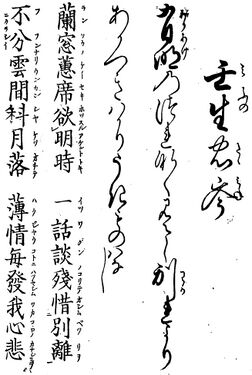 壬生忠岑
有明乃つれなくみえし別より
あかつきはかりうきものはなし
蘭窓蕙席欲明時 一話談殘惜別離
不分雲間斜月落 薄情毎發我心悲